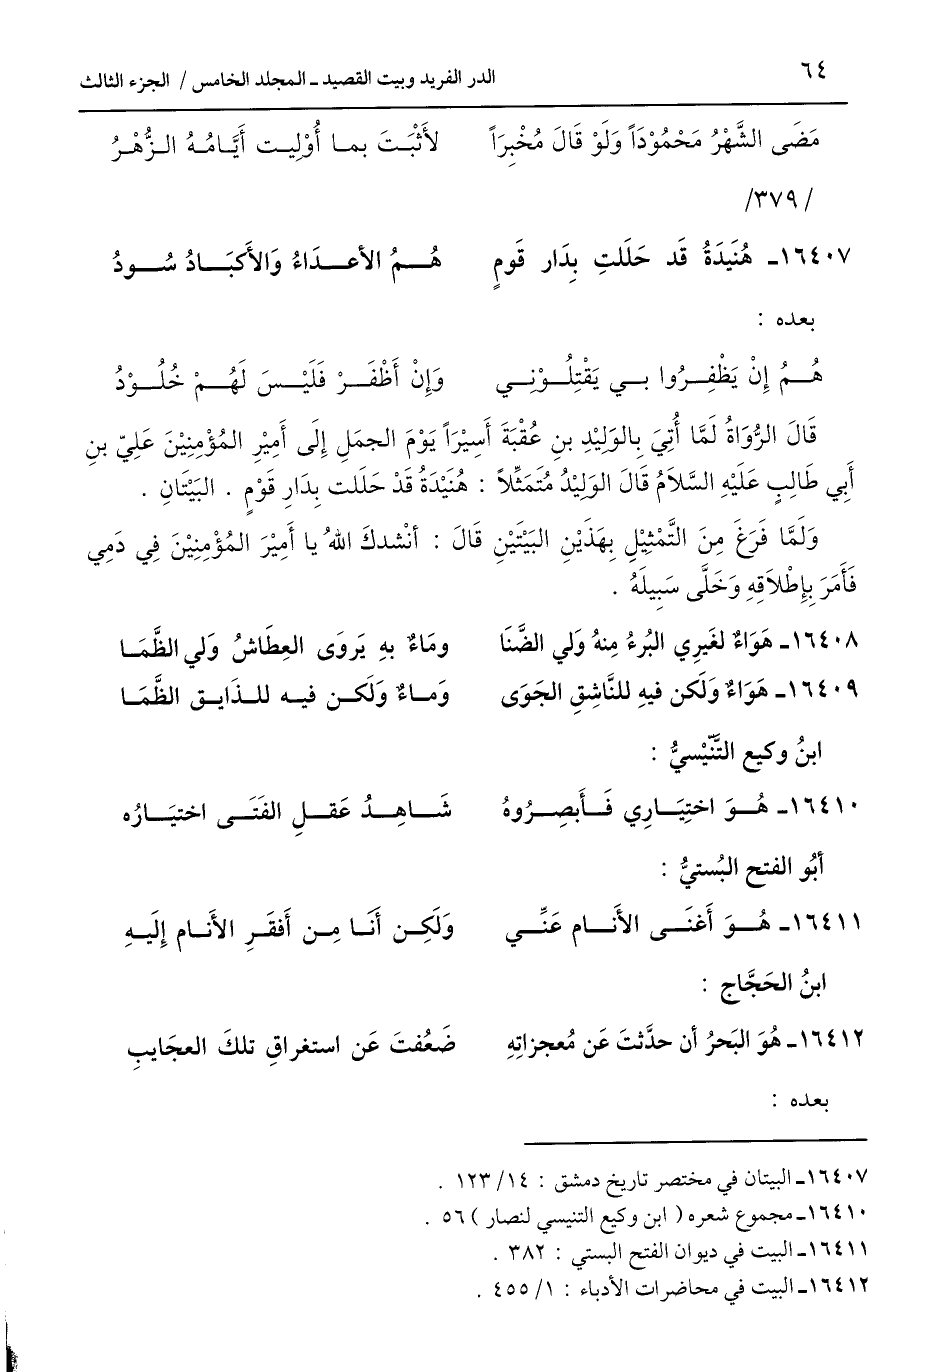 ٦٤ الدر الفريد وبيت القصيد ـ المجلد الخامس / الجزء الثالث
مَضَى الشَّهْرُ مَحْمُوْدَاً وَلَوْ قَالَ مُخْبِرَاً لأَثْبَتَ بما أُوْلِيت أيَّامُهُ الزُّهْرُ
/ ٣٧٩/
١٦٤٠٧ـ هُنَيدَةُ قَد حَلَلَتِ بِدَار قَومٍ هُمُ الأعدَاءُ وَالأَكبَادُ سُودُ
بعده :
هُمُ إنْ يَظْفِرُوا بي يَقْتِلُوْني وَإنْ أَظْفَرْ فَلَيْسَ لَهُمْ خُلُوْدُ
قَالَ الرُّوَاةُ لَمَّا أُتِيَ بِالوَلِيْدِ بنِ عُقْبَةَ أسِيْرَاً يَوْمَ الجمَلِ إلَى أمِيْرِ المُؤْمِنِيْنَ عَلِيّ بنِ
أَبي طَالِبٍ عَلَيْهِ السَّلاَمُ قَالَ الوَلِيْدُ مُتَمَثِّلاً : هُنَيْدَةُ قَدْ حَلَلت بِدَارِ قَوْمٍ . البَيْتَانِ .
وَلَمَّا فَرَغَ مِنَ التَّمْثِيْلِ بِهَذَيْنِ البَيْتَيْنِ قَالَ : أنْشدكَ اللهُ يا أمِيْرَ المُؤْمِنِيْنَ فِي دَمِي
فَأَمَرَ بِإِطْلاَقِهِ وَخَلَّى سَبِيلَهُ .
١٦٤٠٨ـ هَوَاءٌ لغَيرِي البُرءُ مِنهُ ولي الضَّنَا ومَاءٌ بهِ يَروَى العِطَاشُ ولي الظَّمَا
١٦٤٠٩ـ هَوَاءٌ وَلَكن فيهِ للنَّاشِقِ الجَوَى وَمـاءٌ وَلَكـن فيـه للـذايـق الظَّمَا
ابنُ وكيع التّنّيْسيُّ :
١٦٤١٠ـ هُـوَ اختِيَاري فَـأبصِـرُوهُ شَـاهِـدُ عَقـلِ الفَتَـى اختيَـارُه
أبُو الفتح البُستيُّ :
١٦٤١١ـ هُـوَ أغنَـى الأنَـام عَنِّـي وَلَكِـن أنَـا مِـن أَفقَـرِ الأنَـام إلَيـهِ
ابنُ الحَجَّاج :
١٦٤١٢ـ هُوَ البَحرُ أن حدَّثتَ عَن مُعجزاتِهِ ضَعُفتَ عَن استغراقِ تلكَ العجَايبِ
بعده :
١٦٤٠٧ـ البيتان في مختصر تاريخ دمشق : ١٤/ ١٢٣ .
١٦٤١٠ـ مجموع شعره ( ابن وكيع التنيسي لنصار ) ٥٦ .
١٦٤١١ـ البيت في ديوان الفتح البستي : ٣٨٢ .
١٦٤١٢ـ البيت في محاضرات الأدباء : ١/ ٤٥٥ .